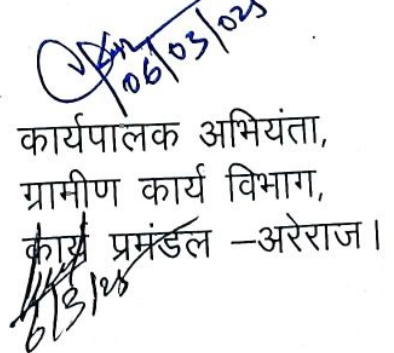 06/03/025
कार्यपालक अभियंता,
ग्रामीण कार्य विभाग,
कार्य प्रमंडल –अरेराज।
6/3/25